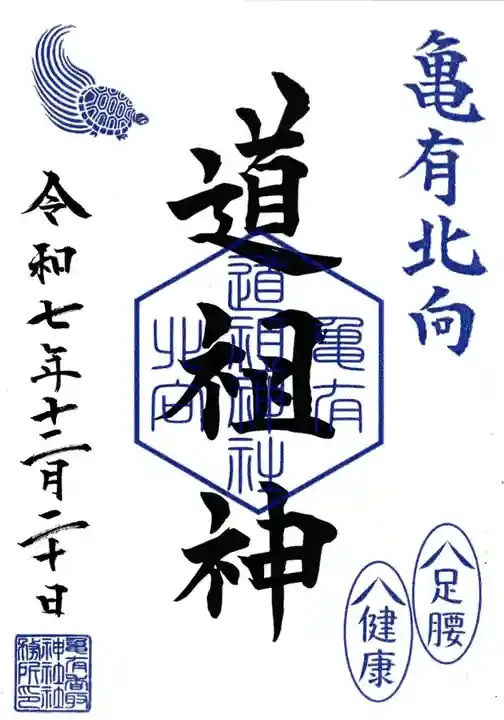 亀有北向
道祖神
亀有
道祖神社
北向
令和七年十二月二十日
足腰
健康
亀有香取
神社社
務所印